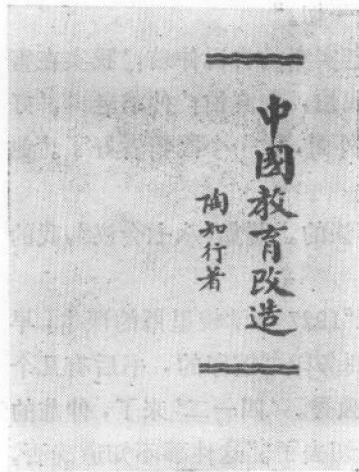 中國教育改造
陶知行著